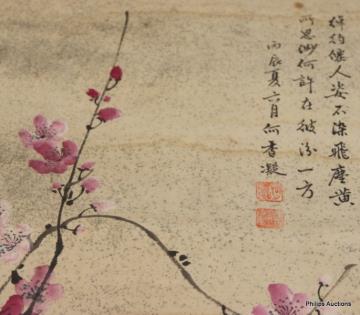 绰约僊人姿不染飛塵黄
所思似何許在彼汾一方
丙辰夏六月何香凝
Philips Auctions